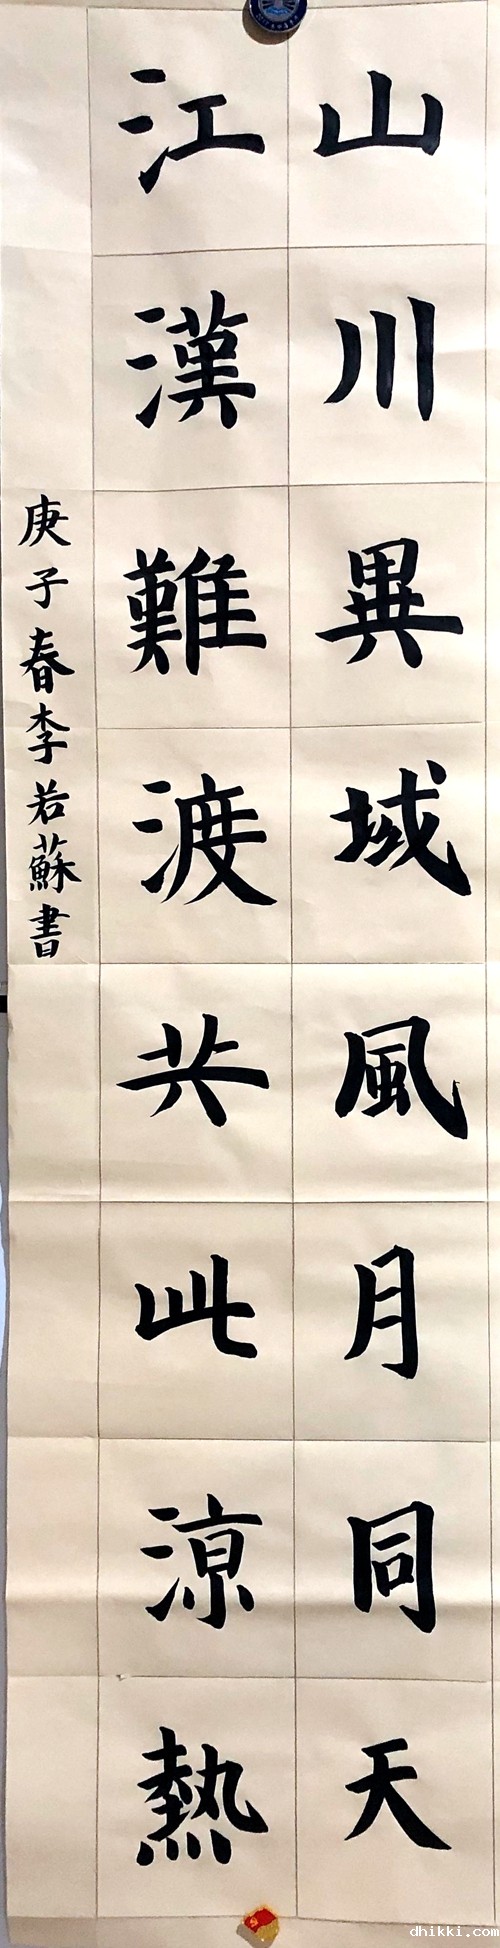 山川異域風月同天
江漢難渡共此涼熱
庚子春李若蘇書
dhikki.com